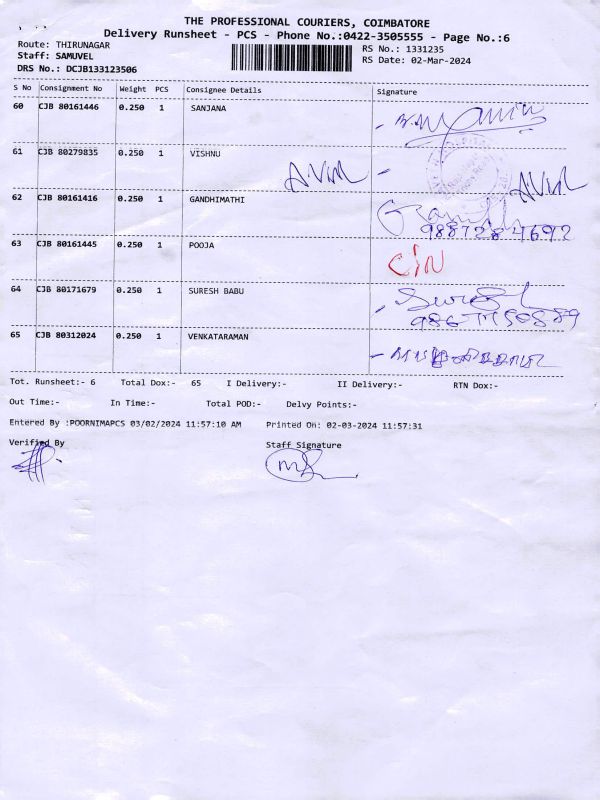 THE PROFESSIONAL COURIERS, COIMBATORE
Delivery Runsheet - PCS - Phone No.:0422-3505555 - Page No.:6
Route: THIRUNAGAR
RS No.: 1331235
Staff: SAMUVEL
RS Date: 02-Mar-2024
DRS No.: DCJB133123506
S No Consignment No Weight PCS Consignee Details Signature
60 CJB 80161446 0.250 1 SANJANA
61 CJB 80279835 0.250 1 VISHNU
62 CJB 80161416 0.250 1 GANDHIMATHI
63 CJB 80161445 0.250 1 POOJA
64 CJB 80171679 0.250 1 SURESH BABU
65 CJB 80312024 0.250 1 VENKATARAMAN
Tot. Runsheet:- 6 Total Dox:- 65 I Delivery:- II Delivery:- RTN Dox:-
Out Time:- In Time:- Total POD:- Delvy Points:-
Entered By :POORNIMAPCS 03/02/2024 11:57:10 AM Printed On: 02-03-2024 11:57:31
Verified By Staff Signature